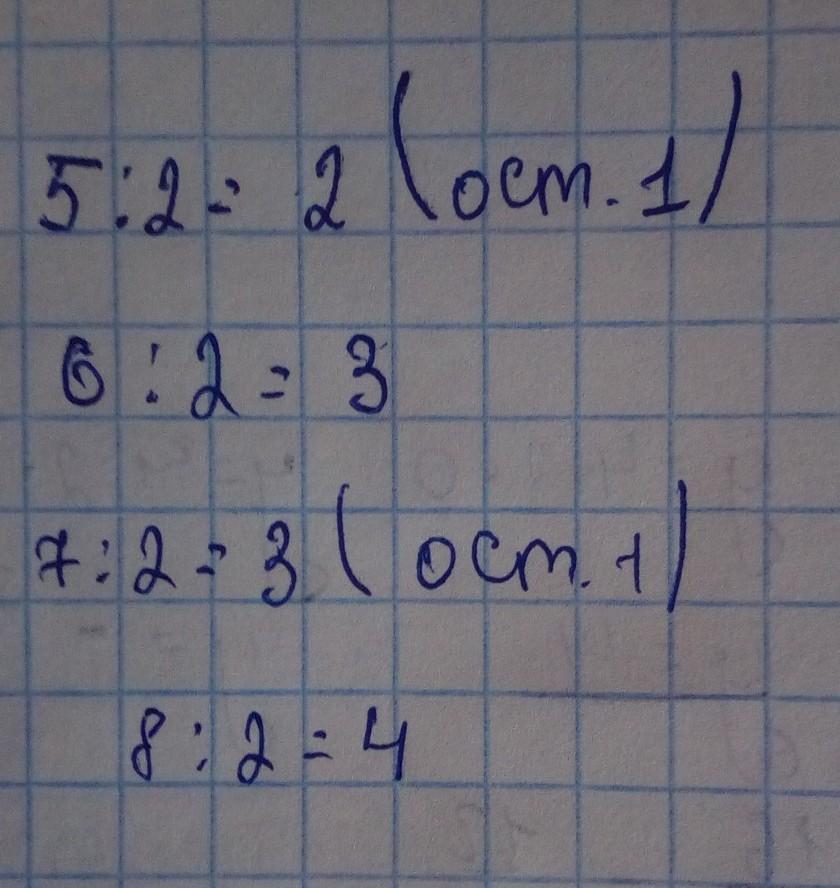 5:2= 2 (ост. 1)
6 : 2 = 3
7:2=3 (ост. 1)
8 : 2 = 4